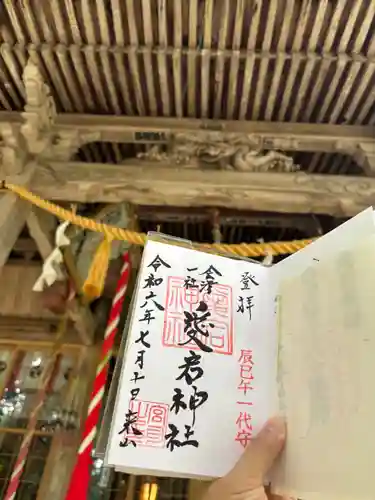 登拝
辰巳午一代守
会津
一社
愛宕神社
令和六年七月十日
来山